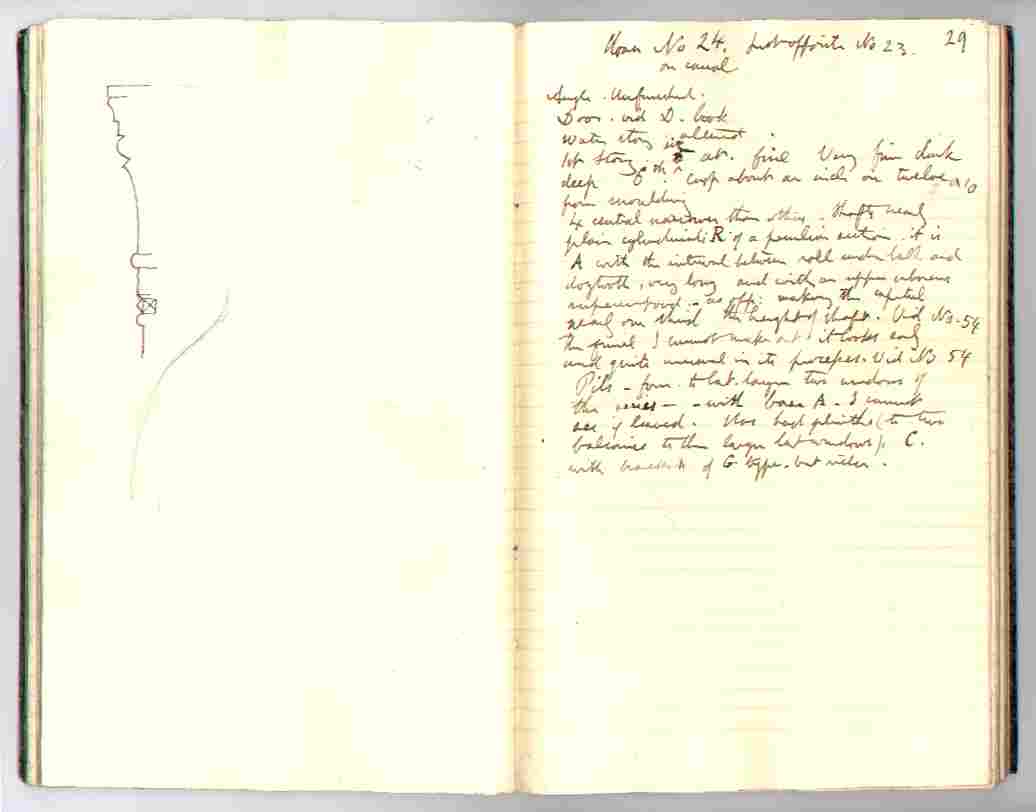 House No 24. Just opposite No 23. 29
on canal
Angle. Unfinished.
Door. vid D. book
Water story altered.
1st Story. 6th cusp about an inch on twelve
deep
from moulding
4 central narrower than others. Shafts nearly
plain cylindrical R of a peculiar section. it is
A with the interval between roll under bell and
dogtooth, very long and with an upper
as opp. making the capital
nearly one third the height of shaft. Vid No. 54
the finial I cannot make out. it looks early
and quite unusual in its processes. Vid No 54
Pils - from to lat. larger two windows of
this series - - with base A. I cannot
see if leaved. Has bad plinths (to two
balconies to the larger lat windows). C.
with brackets of G type. but richer.